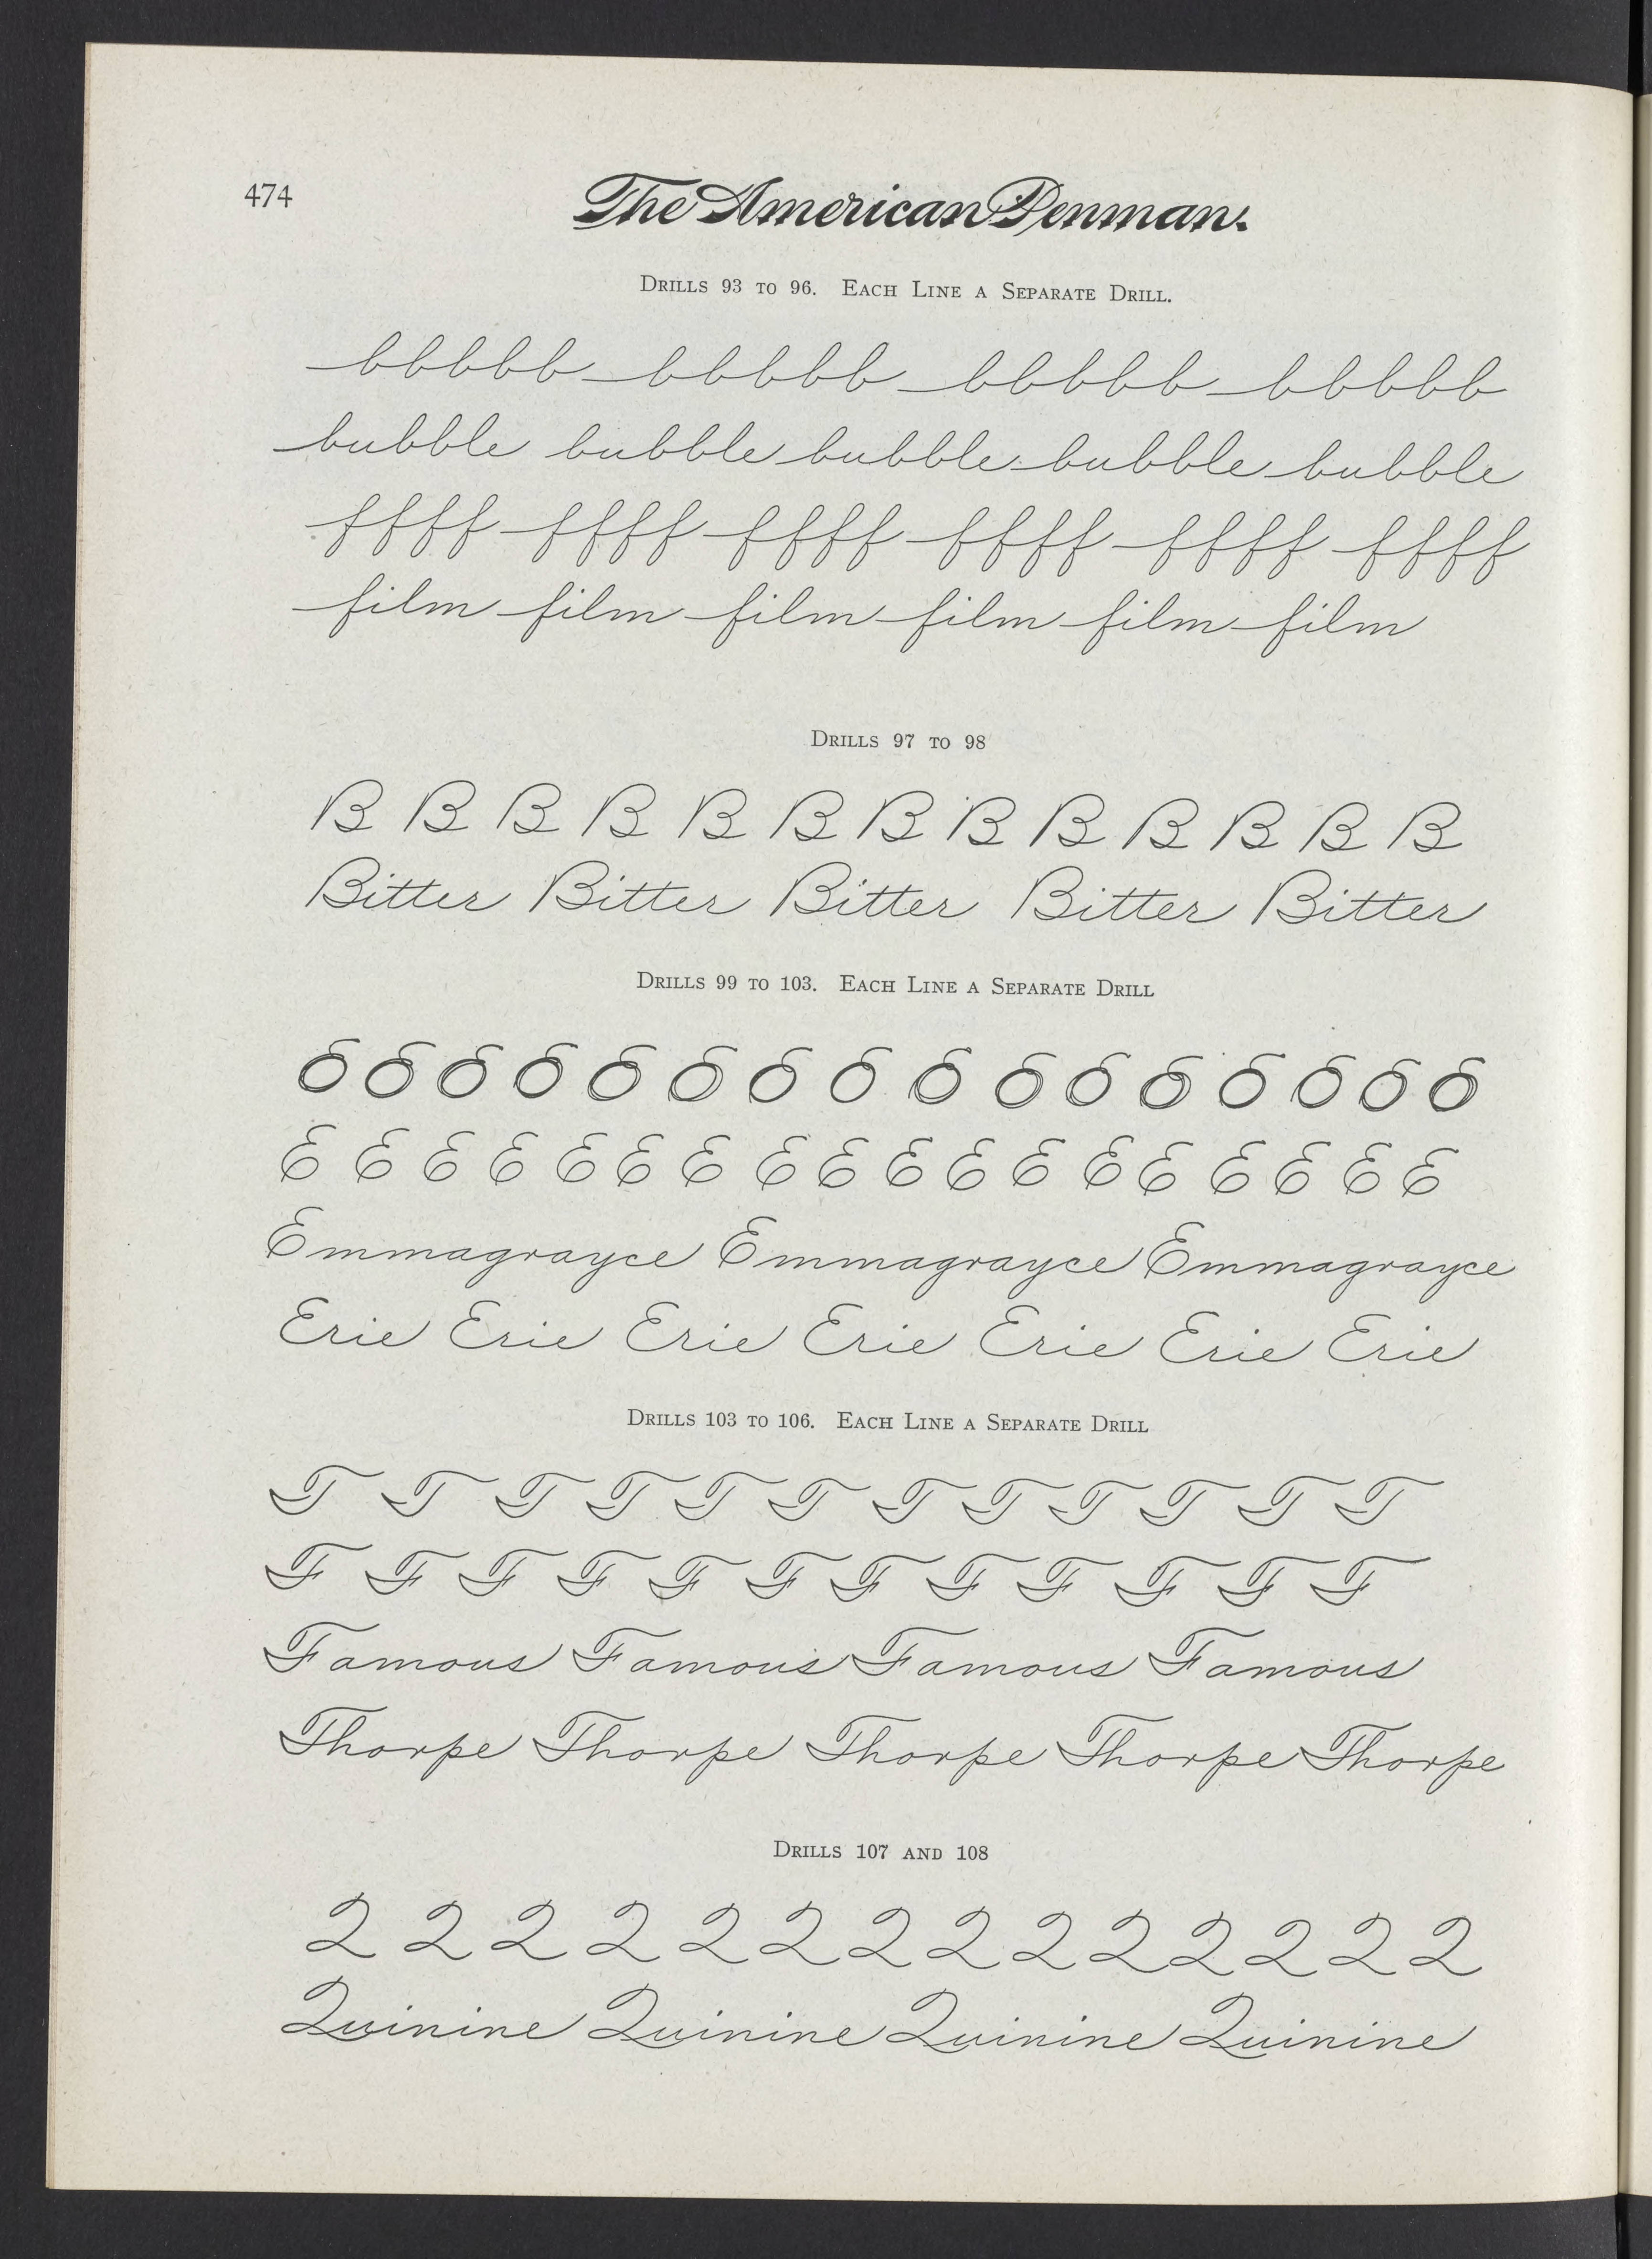 474
The American Penman.
DRILLS 93 TO 96. EACH LINE A SEPARATE DRILL.
bbbbb bbbbb bbbbb bbbbb
bubble bubble bubble bubble bubble
ffff ffff ffff ffff ffff ffff
film film film film film film
DRILLS 97 TO 98
B B B B B B B B B B B B B
Bitter Bitter Bitter Bitter Bitter
DRILLS 99 TO 103. EACH LINE A SEPARATE DRILL
E E E E E E E E E E E E E E E E E E
Emmagrayce Emmagrayce Emmagrayce
Erie Erie Erie Erie Erie Erie Erie
DRILLS 103 TO 106. EACH LINE A SEPARATE DRILL
T T T T T T T T T T T T
F F F F F F F F F F F F
Famous Famous Famous Famous
Thorpe Thorpe Thorpe Thorpe Thorpe
DRILLS 107 AND 108
Q Q Q Q Q Q Q Q Q Q Q Q Q Q
Quinine Quinine Quinine Quinine